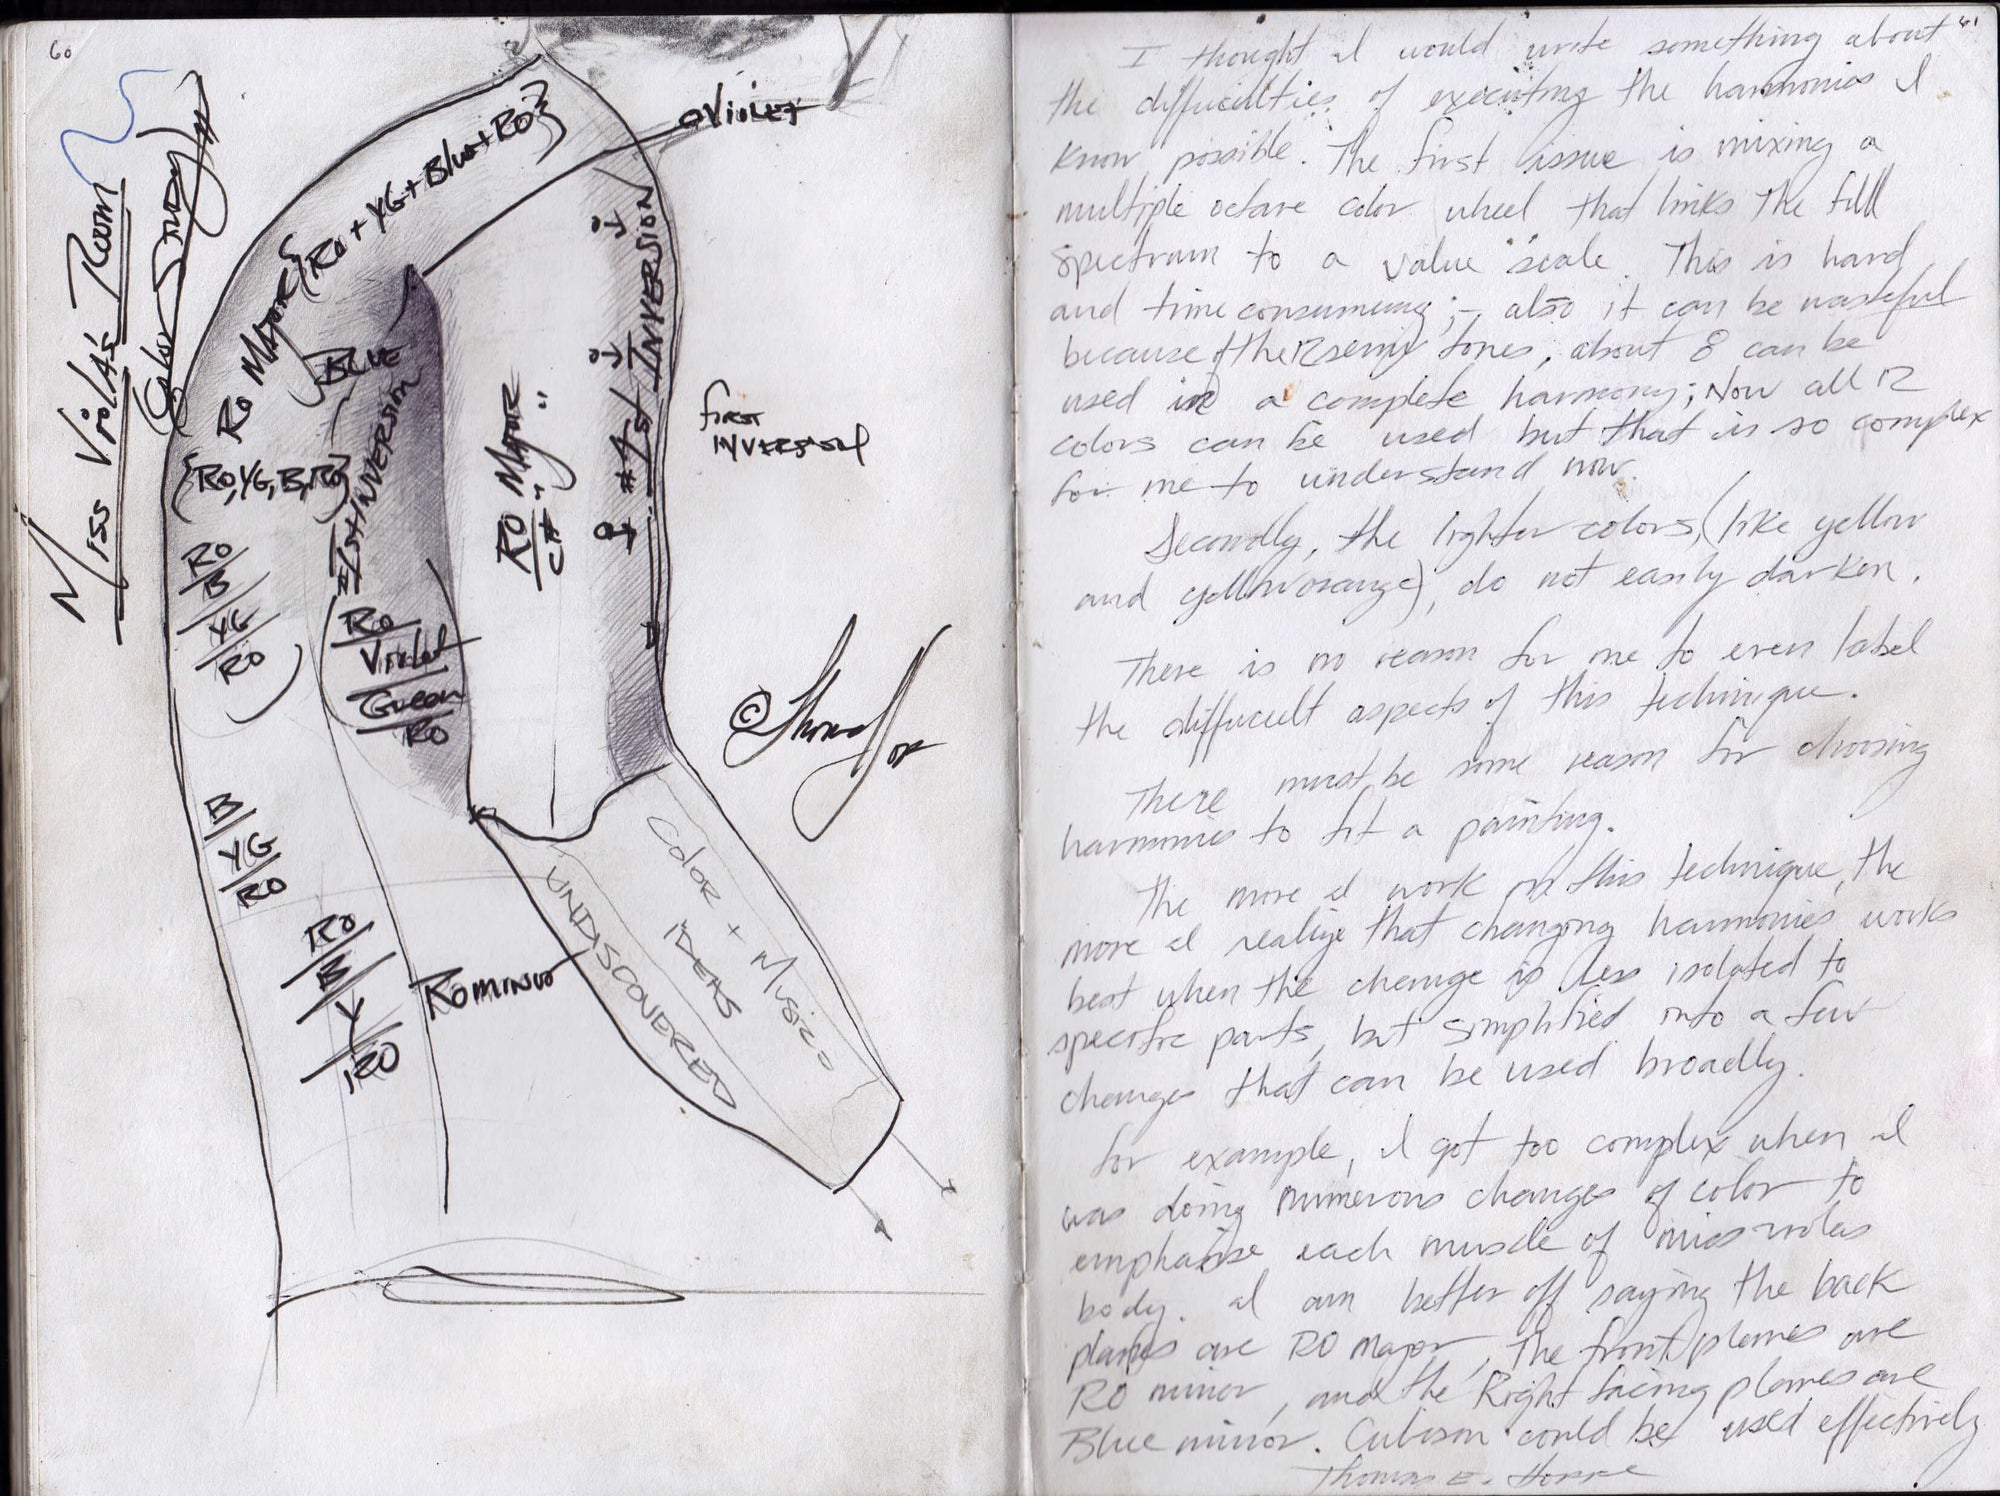 60
Miss Viola's Room
Color Study #
VIOLET
{RO + YG + Blue + RO}
RO MAJOR
BLUE
{RO, YG, B, RO}
#1st INVERSION
RO
B
YG
RO
RO
Violet
Green
RO
RO MAJOR
C#
#1st INVERSION
FIRST
INVERSION
©
B
YG
RO
RO
B
Y
RO
RO MINOR
COLOR + MUSIC
IDEAS
UNDISCOVERED
61
I thought I would write something about
the diffuculties of executing the harmonies I
know possible. The first issue is mixing a
multiple octave color wheel that links the full
spectrum to a value scale. This is hard
and time consuming; - also it can be wasteful
because of the 12 semi tones, about 8 can be
used in a complete harmony; Now all 12
colors can be used but that is so complex
for me to understand now.
Secondly, the lighter colors, (like yellow
and yellow orange), do not easily darken.
There is no reason for me to even label
the diffucult aspects of this technique.
There must be some reason for choosing
harmonies to fit a painting.
The more I work on this technique, the
more I realize that changing harmonies works
best when the change is less isolated to
specific parts, but simplified into a few
changes that can be used broadly.
for example, I got too complex when I
was doing numerous changes of color to
emphasise each muscle of miss violas
body. I am better off saying the back
planes are RO major, the front planes are
RO minor, and the Right facing planes are
Blue minor. Cubism could be used effectively
Thomas E. Hoppe